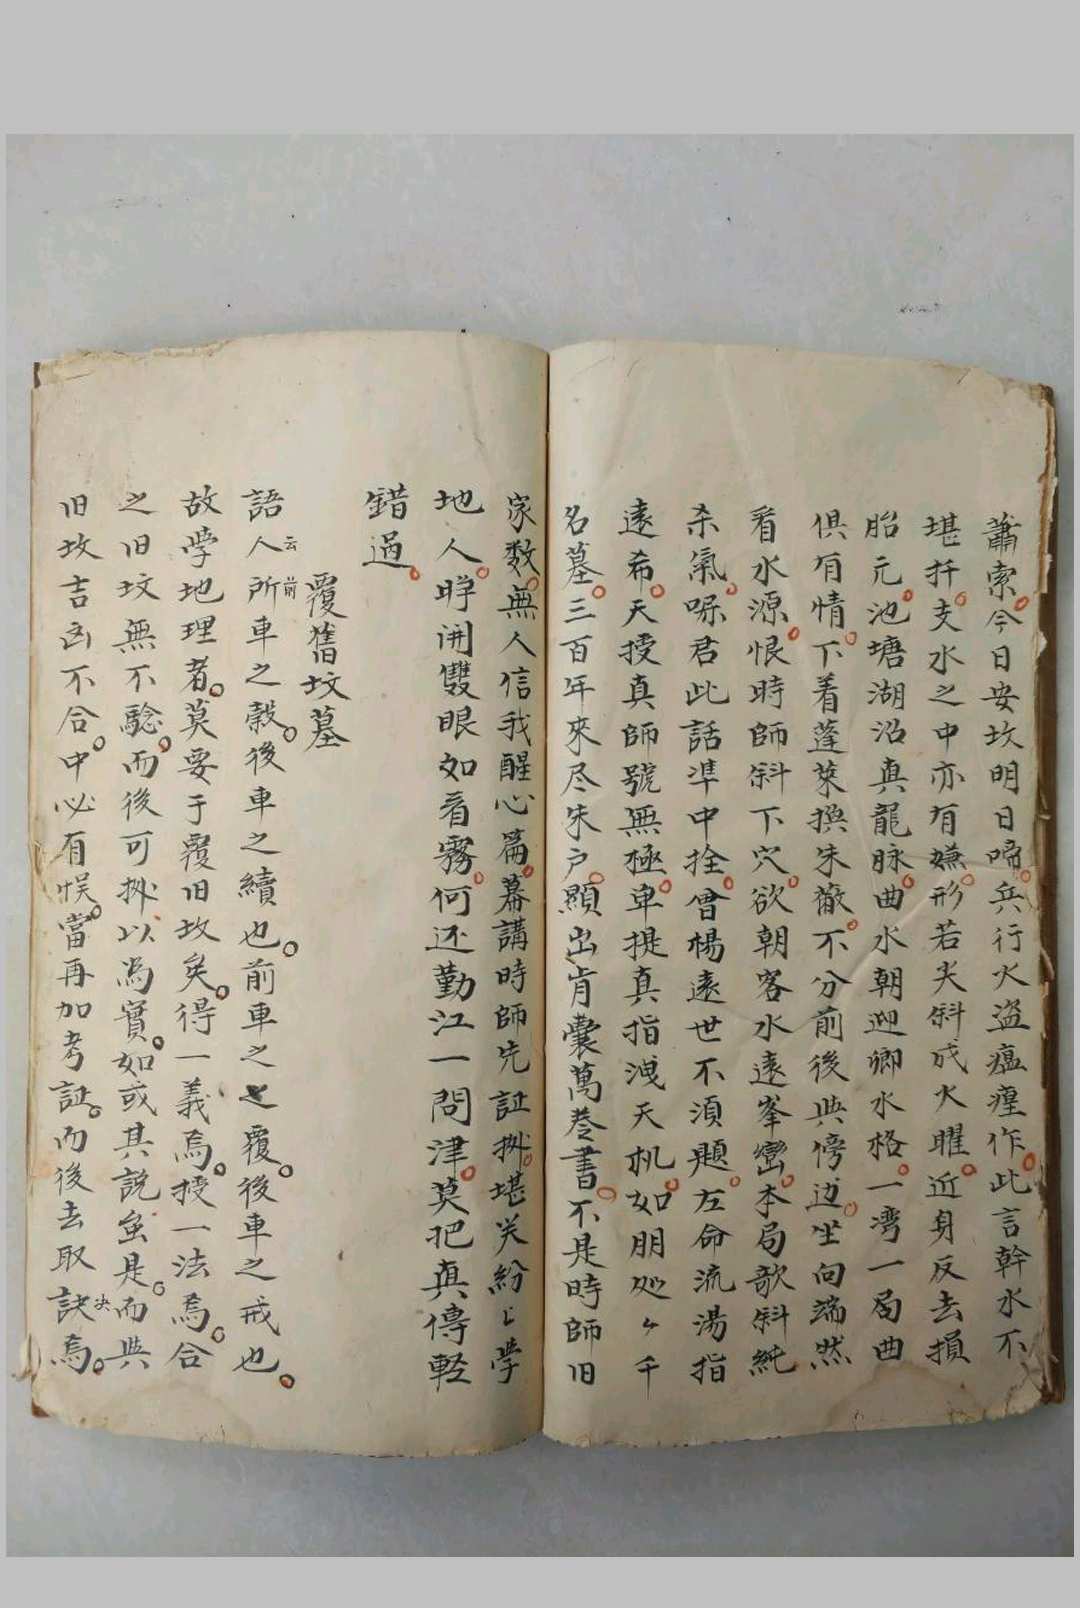 蕭索。今日安坟明日啼。兵行火盗瘟瘽作。此言幹水不
堪扦。支水之中亦有嫌。形若尖斜成火曜。近身反去損
胎元。池塘湖沿真龍脉。曲水朝迎卿水格。一湾一局曲
俱有情。下着蓬萊换朱徽。不分前後與傍边。坐向端然
看水源。恨時師斜下穴。欲朝客水遠峯巒。本局歌斜純
杀氣。嘱君此話凖中拴。曾楊遠世不須題。左命流湯指
遠希。天授真師號無極。卑提真指洩天机。如朋处ケ千
名墓。三百年來尽朱户。顯出肯囊萬巻書。不是時師旧
家数。無人信我醒心篇。幕講時師先証掀。堪笑紛〻學
地人。睁開雙眼如看霧。何还勤江一問津。莫把真傳軽
錯過。
覆舊坟墓
語云前人所車之轂。後車之續也。前車之覆。後車之戒也。
故學地理者。莫要于覆旧坟矣。得一義焉。授一法焉。合
之旧坟無不騐。而後可㧞以為實。如或其説虽是。而與
旧坟吉凶不合。中必有悮。當再加考証。而後去取訣决焉。